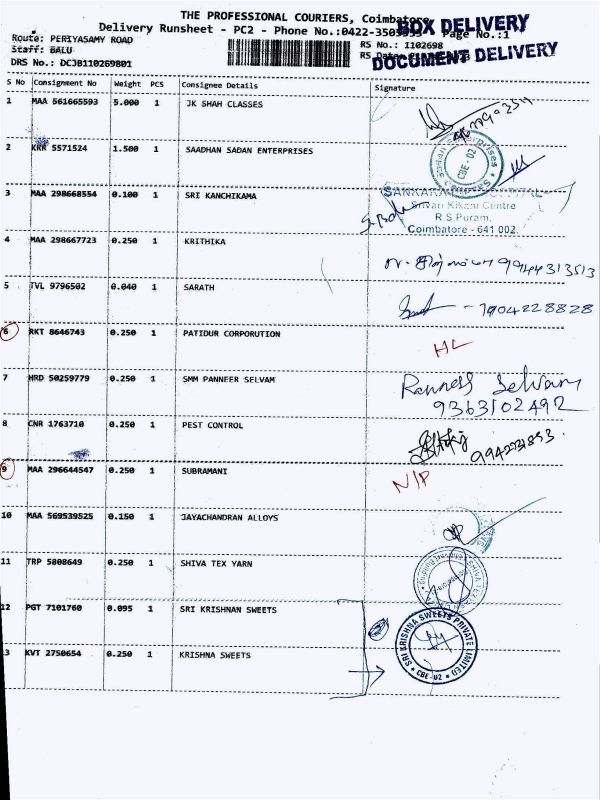 THE PROFESSIONAL COURIERS, Coimbatore
BOX DELIVERY
Delivery Runsheet - PC2 - Phone No.:0422-3505355 Page No.:1
Route: PERIYASAMY ROAD RS No.: I102698
DOCUMENT DELIVERY
Staff: BALU
DRS No.: DCJB110269801
S No Consignment No Weight PCS Consignee Details Signature
1 MAA 561665593 5.000 1 JK SHAH CLASSES
2 KRR 5571524 1.500 1 SAADHAN SADAN ENTERPRISES
CBE-02
3 MAA 298668554 0.100 1 SRI KANCHIKAMA
Srivari Kikani Centre
R.S.Puram,
Coimbatore - 641 002.
4 MAA 298667723 0.250 1 KRITHIKA 9944313513
5 TVL 9796502 0.040 1 SARATH - 7904228828
6 RKT 8646743 0.250 1 PATIDUR CORPORUTION HL
7 HRD 50259779 0.250 1 SMM PANNEER SELVAM
Panneer Selvam
9363102492
8 CNR 1763710 0.250 1 PEST CONTROL
9 MAA 296644547 0.250 1 SUBRAMANI N/P
10 MAA 569539525 0.150 1 JAYACHANDRAN ALLOYS
11 TRP 5808649 0.250 1 SHIVA TEX YARN
12 PGT 7101760 0.095 1 SRI KRISHNAN SWEETS
SRI KRISHNA SWEETS PRIVATE LIMITED
* CBE-02 *
13 KVT 2750654 0.250 1 KRISHNA SWEETS